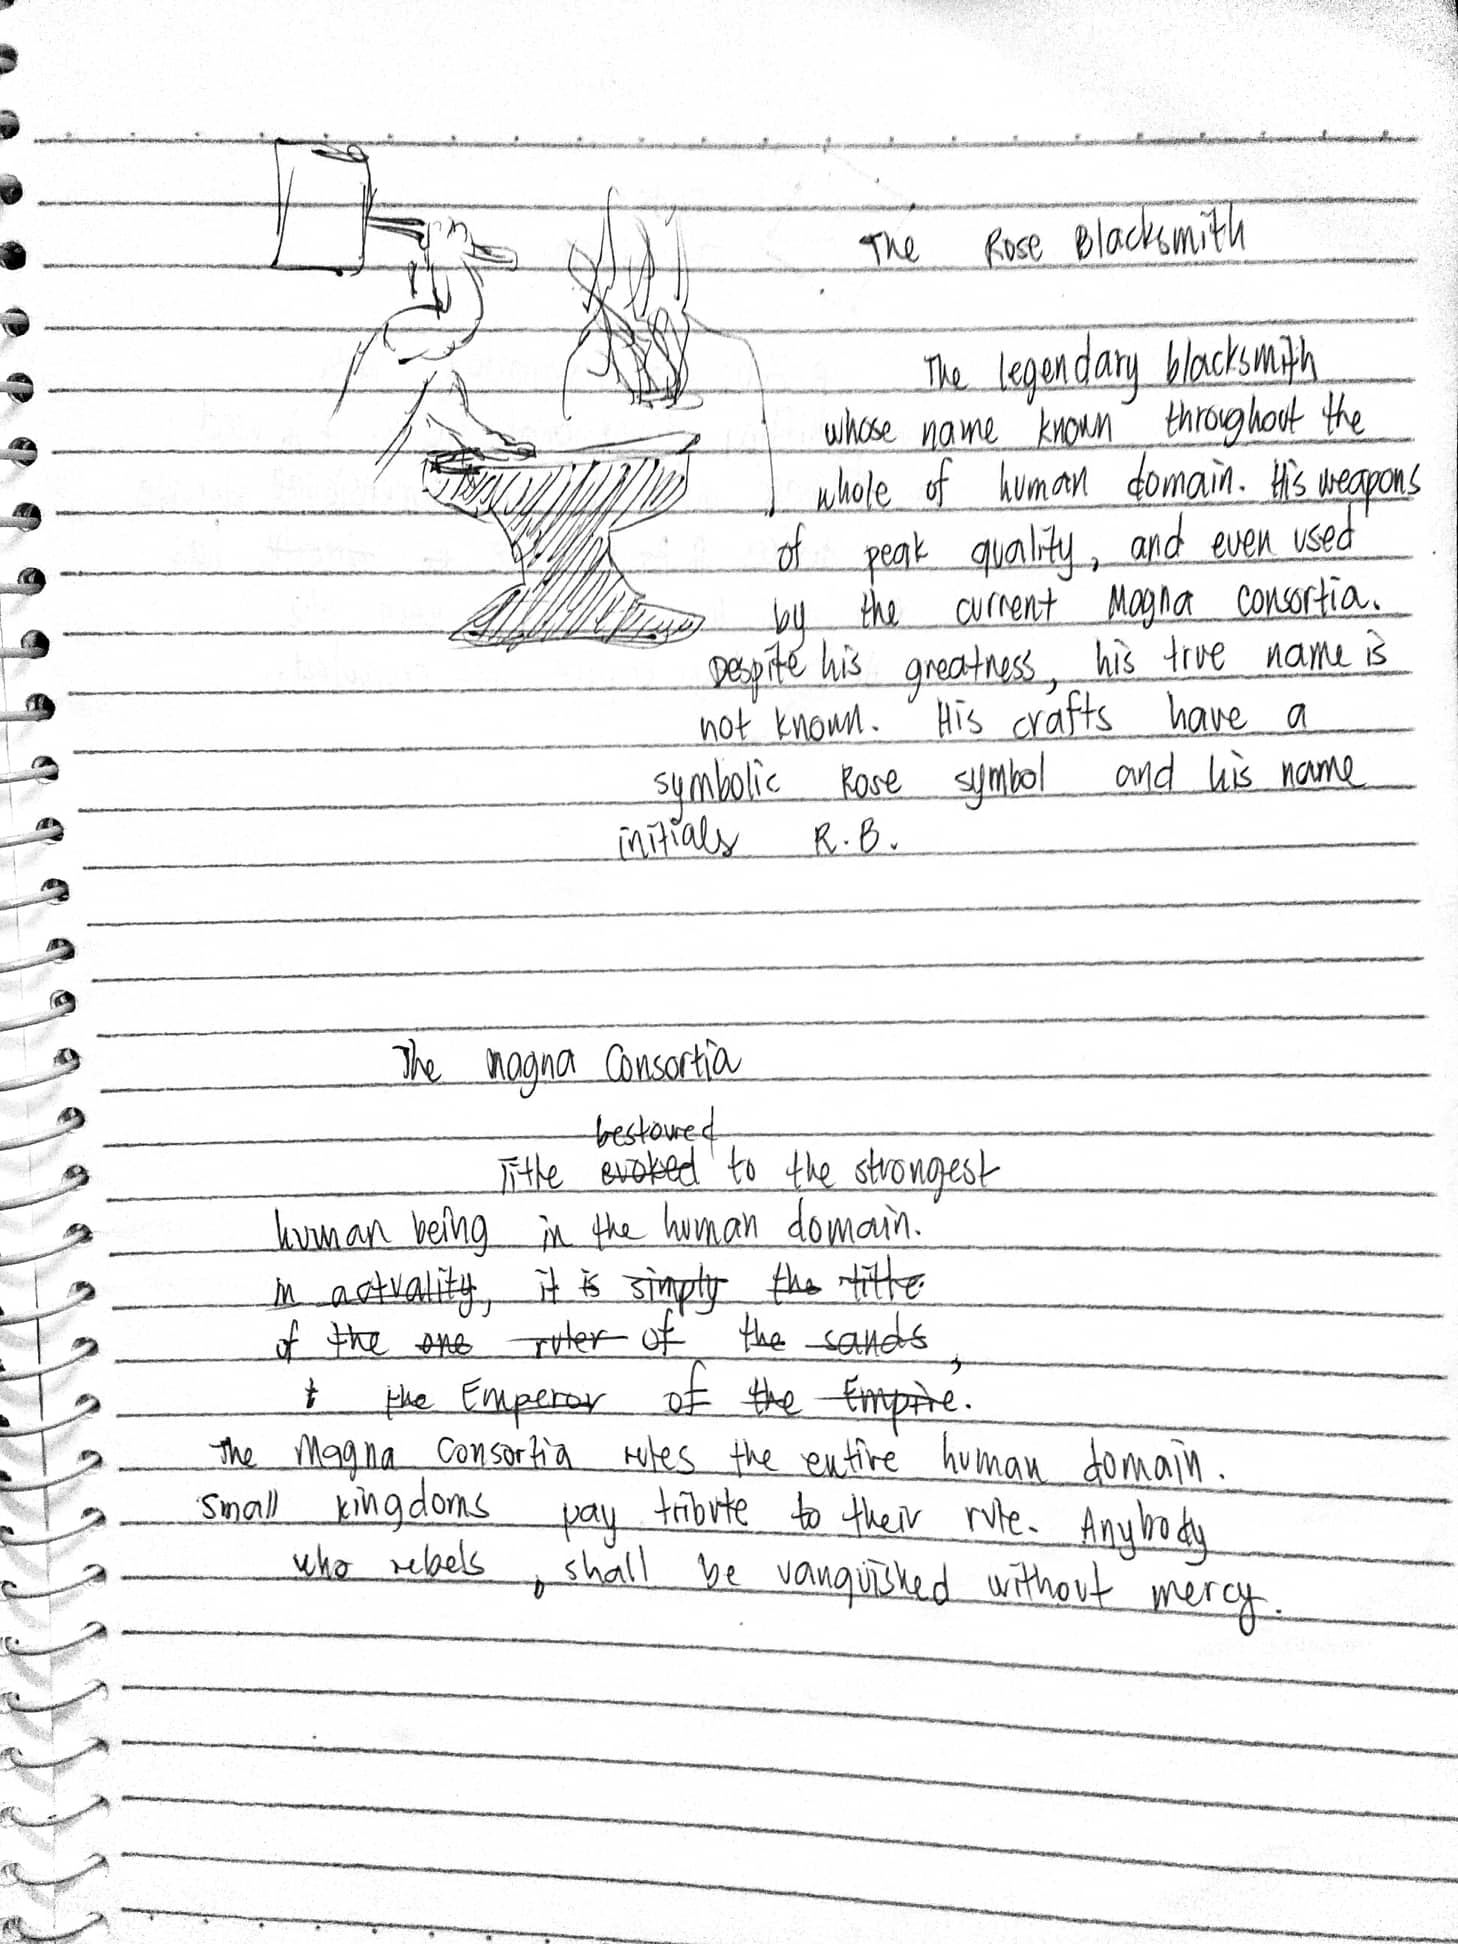 The Rose Blacksmith
The legendary blacksmith
whose name known throughout the
whole of human domain. His weapons
of peak quality, and even used
by the current Magna Consortia.
Despite his greatness, his true name is
not known. His crafts have a
symbolic Rose symbol and his name
initials R.B.
The Magna Consortia
bestowed
Title evoked to the strongest
human being in the human domain.
in actuality, it is simply the title
of the one ruler of the sands,
the Emperor of the Empire.
The Magna Consortia rules the entire human domain.
Small kingdoms pay tribute to their rule. Anybody
who rebels, shall be vanquished without mercy.